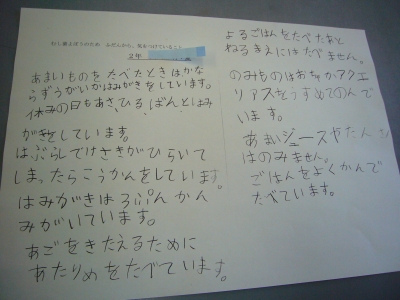 むし歯よぼうのため ふだんから、気をつけていること。
2年
あまいものをたべたときはかな
らずうがいかはみがきをしています。
休みの日もあさ、ひる、ばんとはみ
がきをしています。
はぶらしでけさきがひらいて
しまったらこうかんをしています。
はみがきは3ぷんかん
みがいています。
あごをきたえるために
あたりめをたべています。
よるごはんをたべたあと
ねるまえにはたべません。
のみものはおちゃかアクエ
リアスをうすめてのんで
います。
あまいジュースやたんさん
はのみません。
ごはんをよくかんで
たべています。